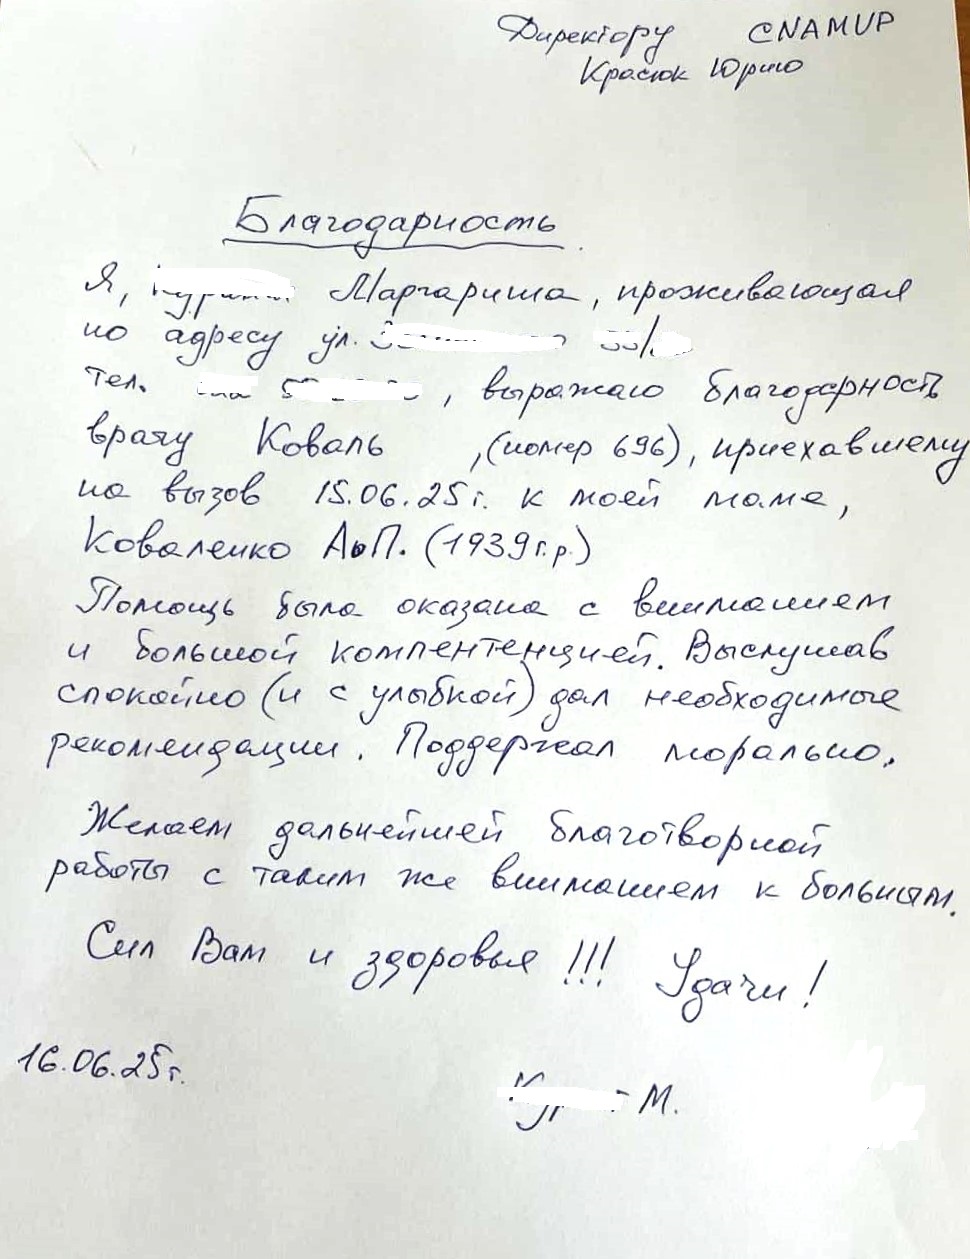 Директору CNAMUP
Красюк Юрию
Благодарность
Я, Маргарита, проживающая
по адресу ул.
тел. , выражаю благодарность
врачу Коваль ,(номер 696), приехавшему
на вызов 15.06.25г. к моей маме,
Коваленко А.П. (1939г.р.)
Помощь была оказана с вниманием
и большой компентенцией. Выслушав
спокойно (и с улыбкой) дал необходимые
рекомендации. Поддержал морально.
Желаем дальнейшей благотворной
работы с таким же вниманием к больным.
Сил Вам и здоровья !!! Удачи!
16.06.25г.
М.